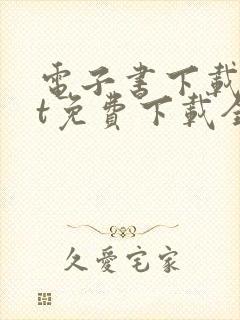 電子書下載
t免費下載全
久愛宅家